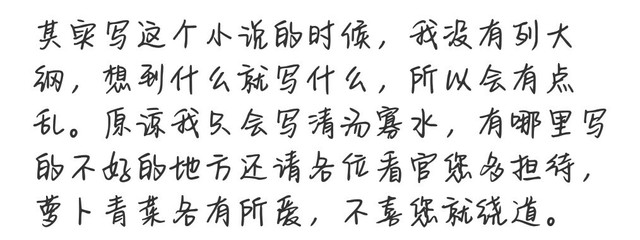 其实写这个小说的时候，我没有列大
纲，想到什么就写什么，所以会有点
乱。原谅我只会写清汤寡水，有哪里写
的不好的地方还请各位看官您多担待，
萝卜青菜各有所爱，不喜您就绕道。